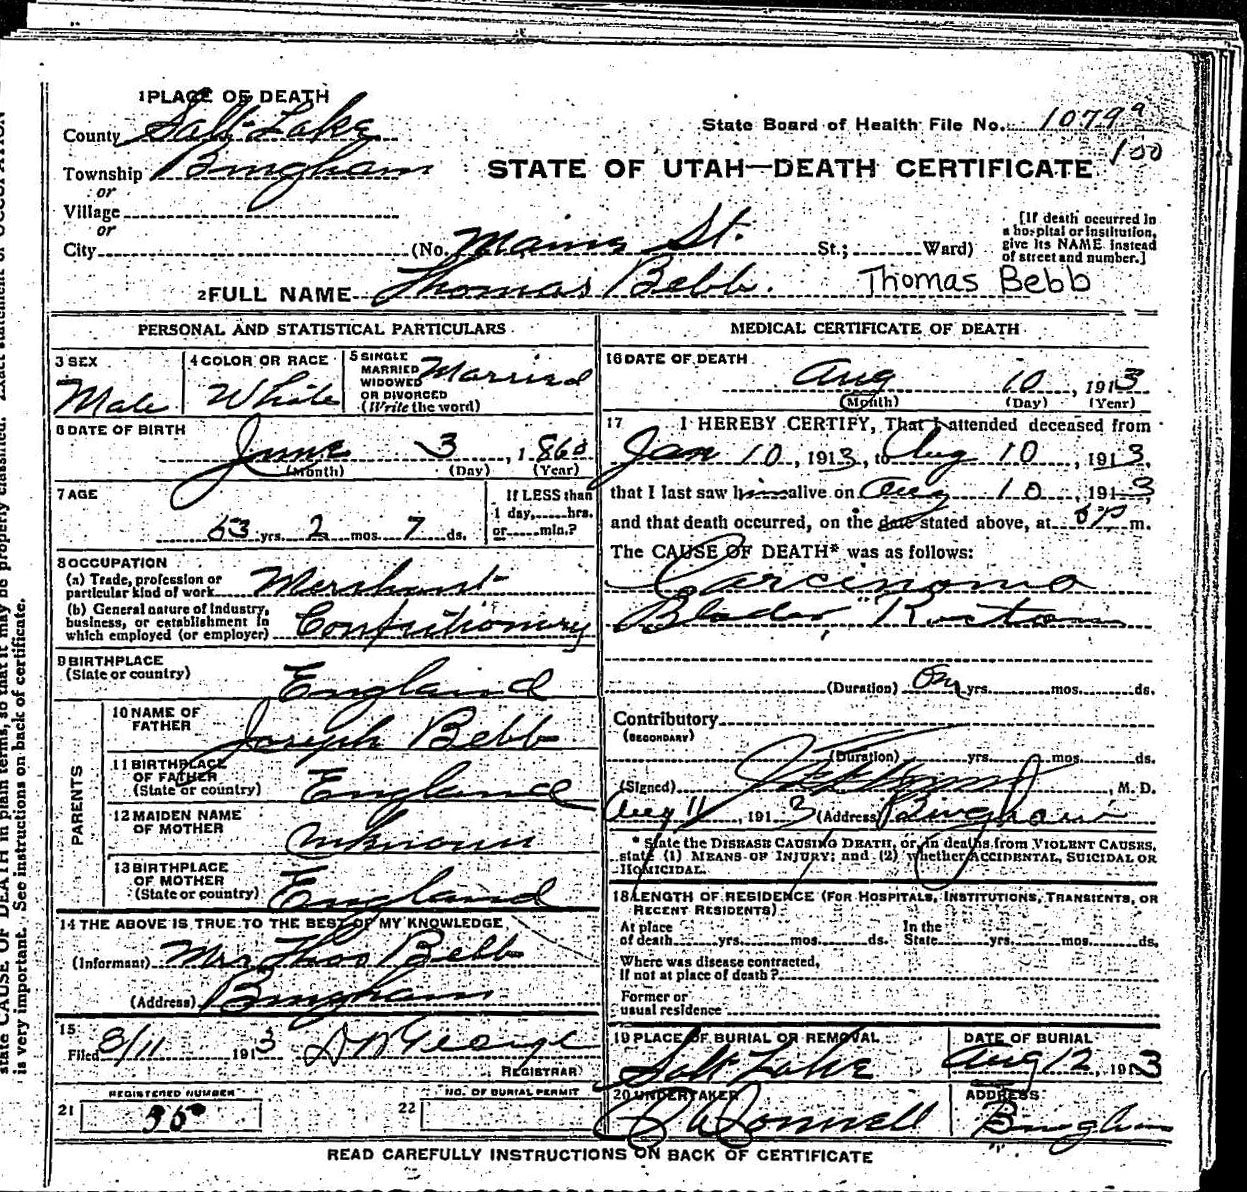 state CAUSE OF DEATH in plain terms, so that it may be properly classified. Exact statement of OCCUPATION
is very important. See instructions on back of certificate.
1 PLACE OF DEATH
County Salt Lake
State Board of Health File No. 1079
100
Township Bingham
STATE OF UTAH—DEATH CERTIFICATE
or
Village
or
City (No. Main St. St.; Ward)
[If death occurred in
a hospital or institution,
give its NAME instead
of street and number.]
2 FULL NAME Thomas Bebb. Thomas Bebb
PERSONAL AND STATISTICAL PARTICULARS
3 SEX
Male
4 COLOR OR RACE
White
5 SINGLE
MARRIED
WIDOWED
OR DIVORCED
(Write the word)
Married
6 DATE OF BIRTH
June 3, 1860
(Month) (Day) (Year)
7 AGE
53 yrs. 2 mos. 7 ds.
If LESS than
1 day, hrs.
or min.?
8 OCCUPATION
(a) Trade, profession or
particular kind of work Merchant
(b) General nature of Industry,
business, or establishment in
which employed (or employer) Confutionery
9 BIRTHPLACE
(State or country) England
PARENTS
10 NAME OF
FATHER Joseph Bebb
11 BIRTHPLACE
OF FATHER
(State or country) England
12 MAIDEN NAME
OF MOTHER Unknown
13 BIRTHPLACE
OF MOTHER
(State or country) England
14 THE ABOVE IS TRUE TO THE BEST OF MY KNOWLEDGE
(Informant) Mrs Thos Bebb
(Address) Bingham
15
Filed 8/11 1913 George
REGISTRAR
REGISTERED NUMBER
21
NO. OF BURIAL PERMIT
22
MEDICAL CERTIFICATE OF DEATH
16 DATE OF DEATH
Aug 10, 1913
(Month) (Day) (Year)
17 I HEREBY CERTIFY, That I attended deceased from
Jan 10, 1913, to Aug 10, 1913,
that I last saw him alive on Aug 10, 1913
and that death occurred, on the date stated above, at m.
The CAUSE OF DEATH* was as follows:
Carcinoma
Blader
(Duration) One yrs. mos. ds.
Contributory
(SECONDARY)
(Duration) yrs. mos. ds.
(Signed) , M. D.
Aug 11, 1913 (Address) Bingham
* State the DISEASE CAUSING DEATH, or, in deaths from VIOLENT CAUSES,
state (1) MEANS OF INJURY; and (2) whether ACCIDENTAL, SUICIDAL OR
HOMICIDAL.
18 LENGTH OF RESIDENCE (FOR HOSPITALS, INSTITUTIONS, TRANSIENTS, OR
RECENT RESIDENTS)
At place
of death yrs. mos. ds.
In the
State yrs. mos. ds.
Where was disease contracted,
If not at place of death?
Former or
usual residence
19 PLACE OF BURIAL OR REMOVAL
Salt Lake
DATE OF BURIAL
Aug 12, 1913
20 UNDERTAKER
ADDRESS
Bingham
READ CAREFULLY INSTRUCTIONS ON BACK OF CERTIFICATE